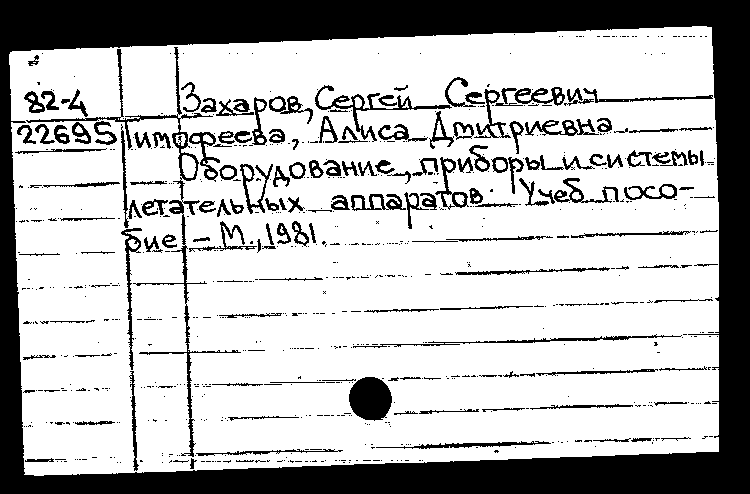 82-4 Захаров, Сергей Сергеевич
22695 Тимофеева, Алиса Дмитриевна.
Оборудование, приборы и системы
летательных аппаратов. Учеб. посо-
бие. – М., 1981.